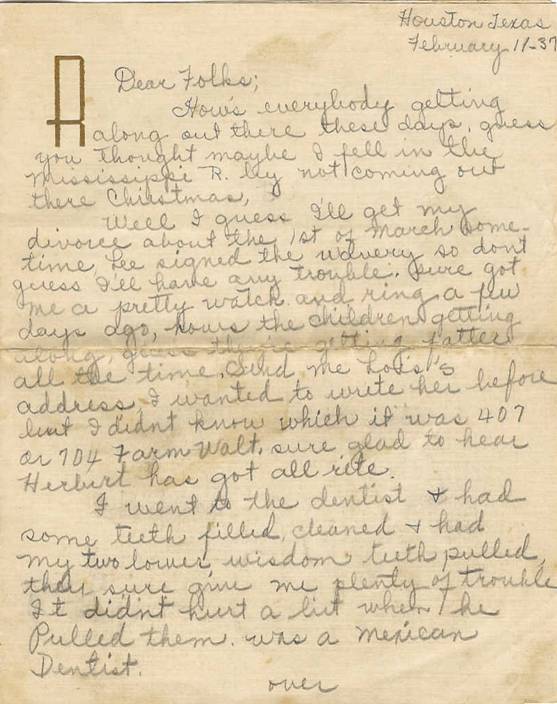 Houston Texas
February 11-37
R
Dear Folks;
How's everybody getting
along out there these days, guess
you thought maybe I fell in the
Mississippi R. by not coming out
there Christmas,
Well I guess I'll get my
divorce about the 1st of March some-
time, Lee signed the wavery so dont
guess I'll have any trouble. Sure got
me a pretty watch and ring a few
days ago, hows the children getting
along, guess they're getting fatter
all the time. Send me Lois's
address, I wanted to write her before
but I didnt know which it was 407
or 704 Farm Walt. sure glad to hear
Herbert has got all rite.
I went to the dentist + had
some teeth filled, cleaned + had
my two lower wisdom teeth pulled,
they sure give me plenty of trouble
It didnt hurt a bit when he
Pulled them. was a Mexican
Dentist.
over